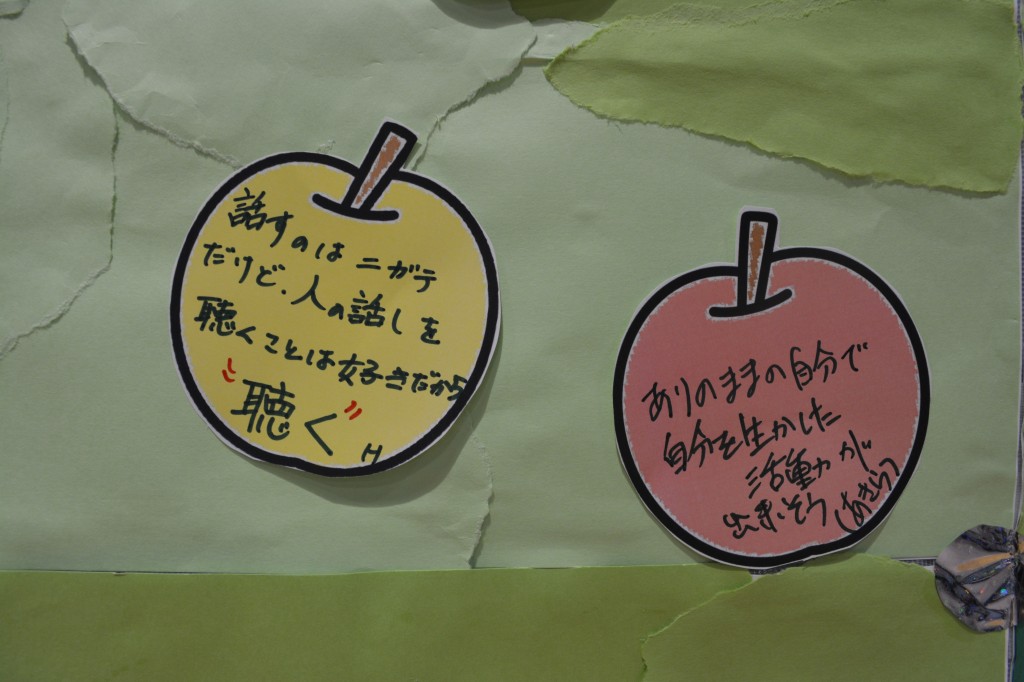 話すのは ニガテ
だけど、人の話しを
聴くことは好きだから
"聴く"
H
ありのままの自分で
自分を生かした
活動が
出来そう (あきら)